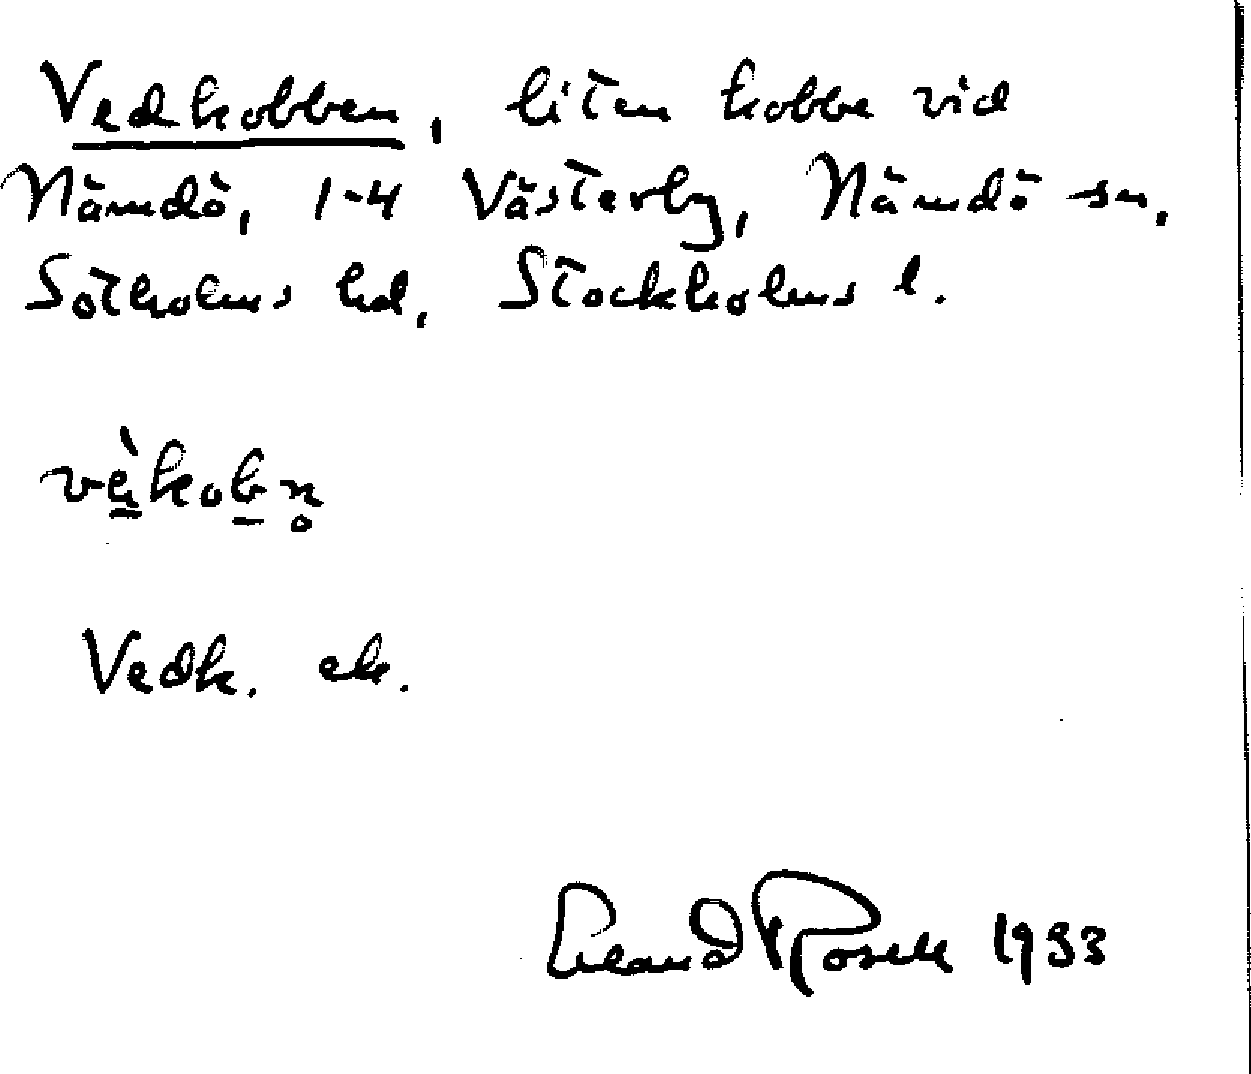 Vedkobben, liten kobbe vid
Nämdö, 1-4 Västerby, Nämdö sn,
Sotholms hd, Stockholms l.
vèkobn̥
Vedk. ek.
Erland Rosell 1933